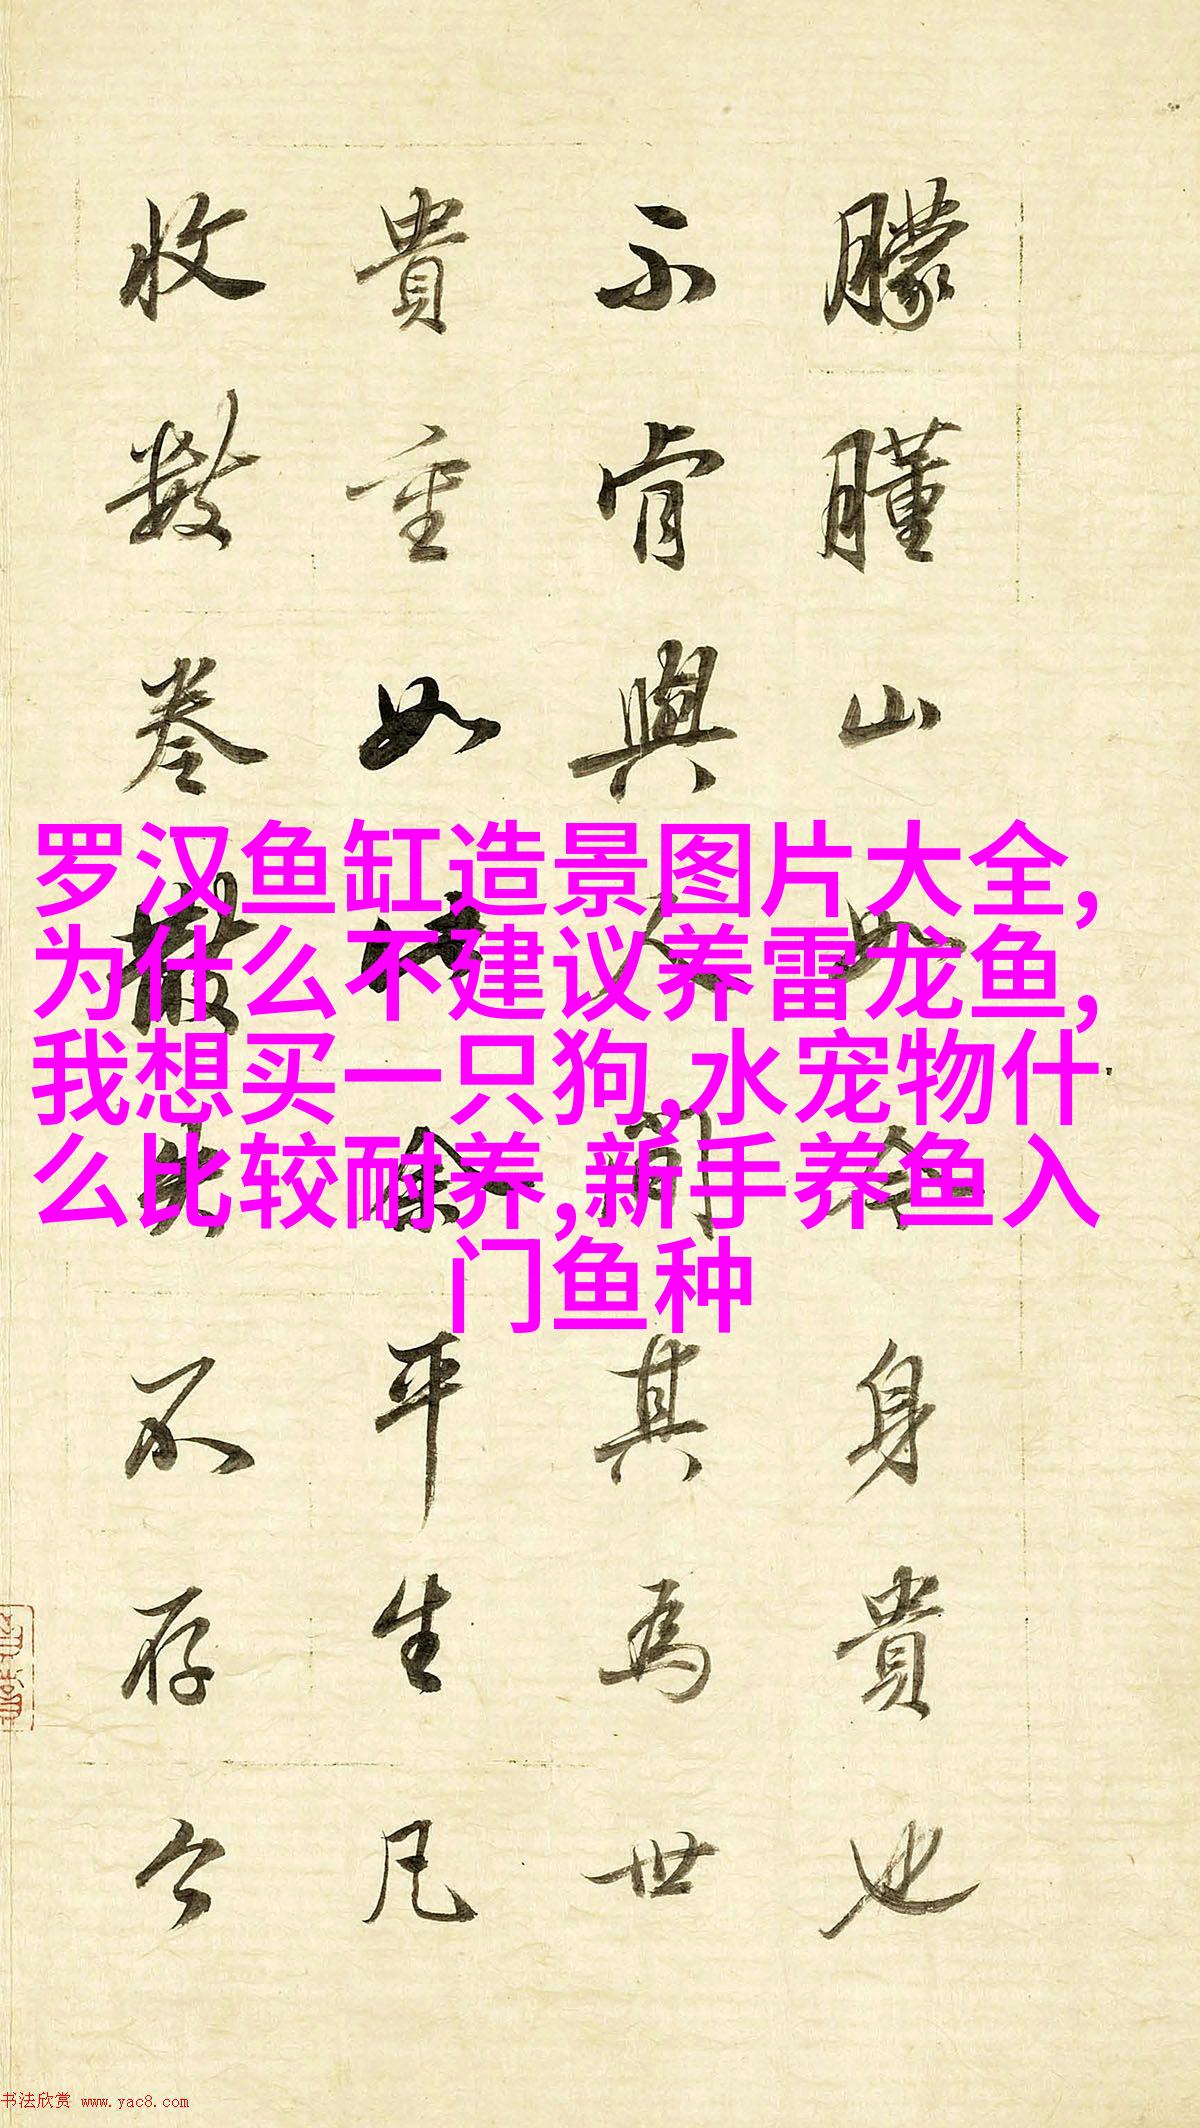 罗汉鱼缸造景图片大全,
为什么不建议养雷龙鱼,
我想买一只狗,水宠物什
么比较耐养,新手养鱼入
门鱼种
朦山身貴也
不肯與人間其為世
貴重如平生凡
收數卷不存今
书法欣赏 www.yac8.com